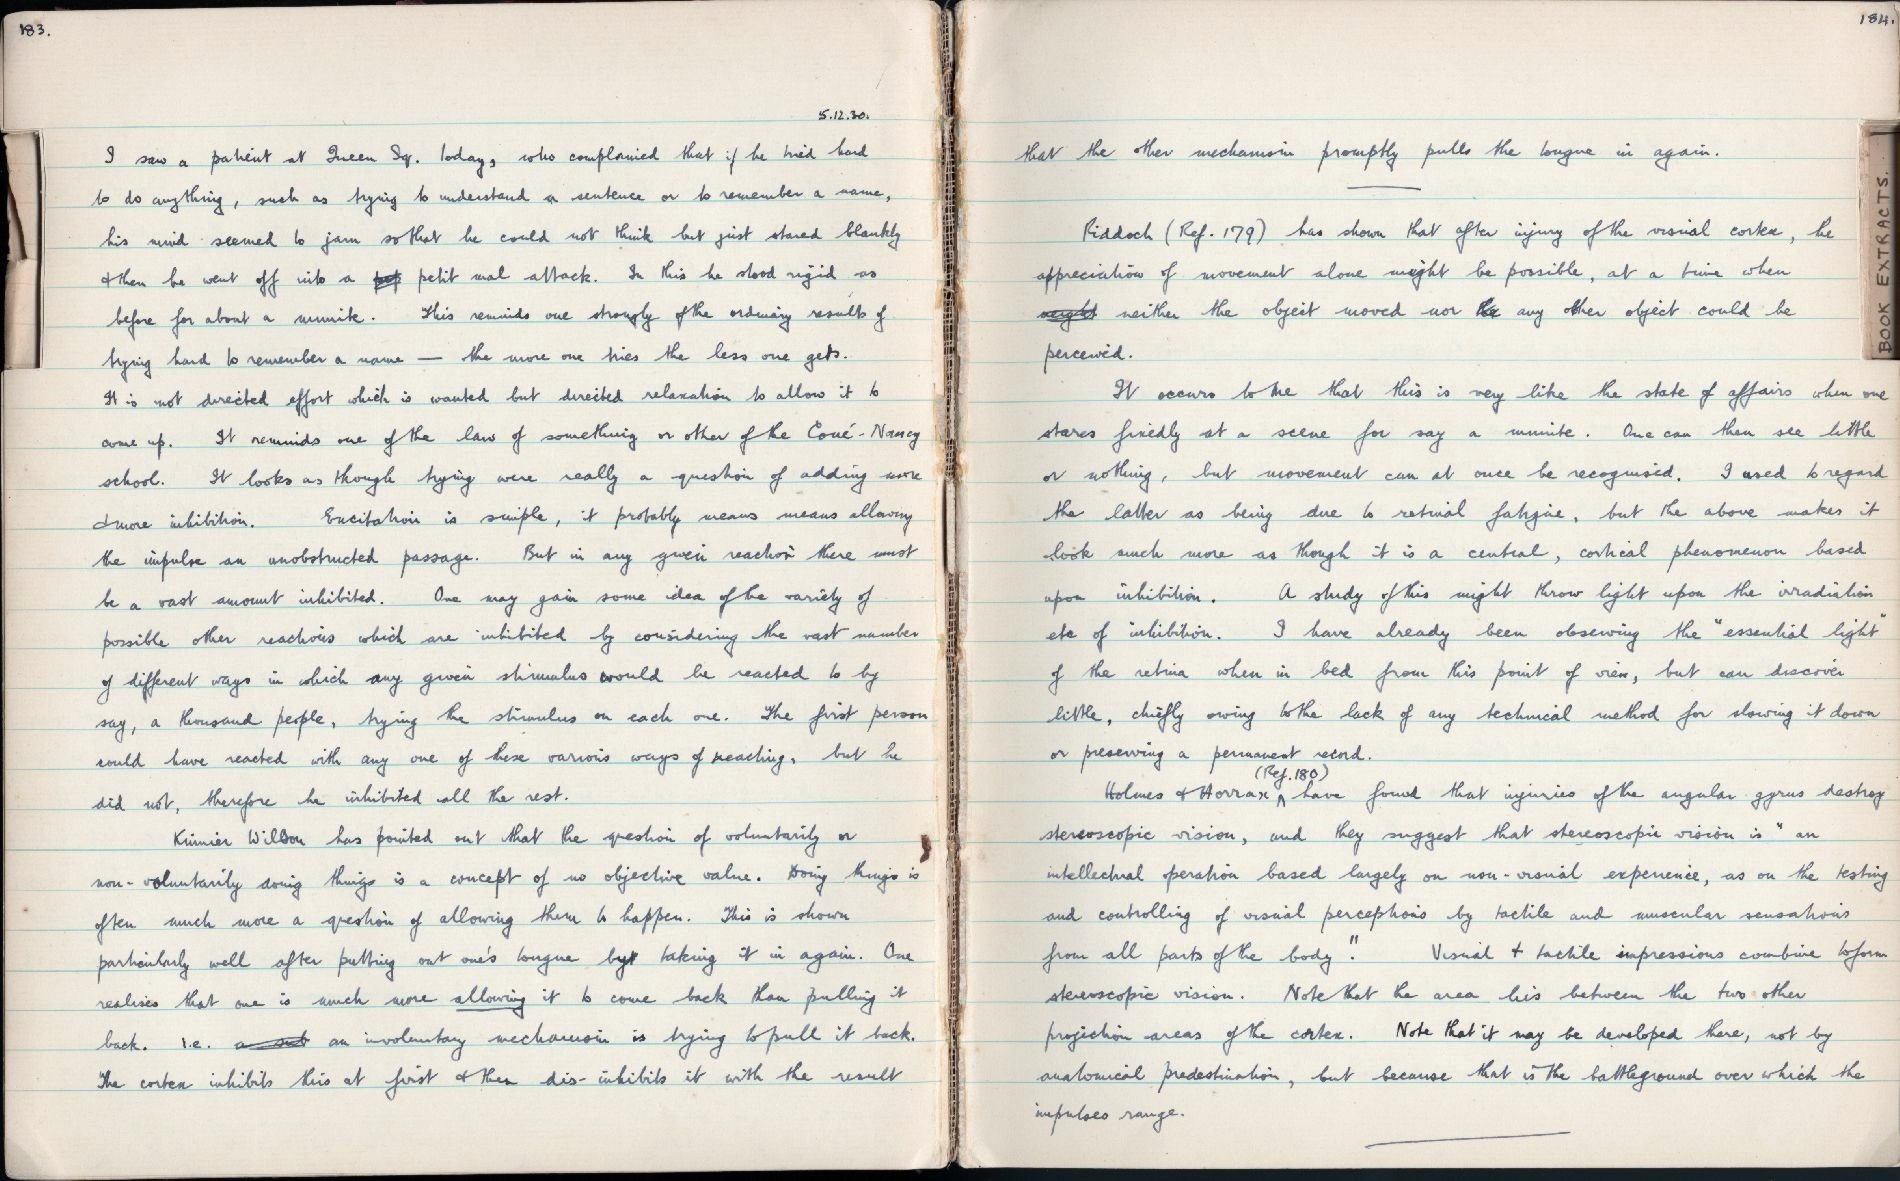 183.
5.12.30.
I saw a patient at Queen Sq. today, who complained that if he tried hard
to do anything, such as trying to understand a sentence or to remember a name,
his mind seemed to jam so that he could not think but just stared blankly
& then he went off into a petit mal attack. In this he stood rigid as
before for about a minute. This reminds one strongly of the ordinary results of
trying hard to remember a name — the more one tries the less one gets.
It is not directed effort which is wanted but directed relaxation to allow it to
come up. It reminds one of the law of something or other of the Coué-Nancy
school. It looks as though trying were really a question of adding more
& more inhibition. Excitation is simple, it probably means means allowing
the impulse an unobstructed passage. But in any given reaction there must
be a vast amount inhibited. One may gain some idea of the variety of
possible other reactions which are inhibited by considering the vast number
of different ways in which any given stimulus would be reacted to by
say, a thousand people, trying the stimulus on each one. The first person
could have reacted with any one of these various ways of reacting, but he
did not, therefore he inhibited all the rest.
Kinnier Wilson has pointed out that the question of voluntarily or
non-voluntarily doing things is a concept of no objective value. Doing things is
often much more a question of allowing them to happen. This is shown
particularly well after putting out one's tongue by taking it in again. One
realises that one is much more allowing it to come back than pulling it
back. i.e. an involuntary mechanism is trying to pull it back.
The cortex inhibits this at first & then dis-inhibits it with the result
184.
that the other mechanism promptly pulls the tongue in again.
Riddoch (Ref. 179) has shown that after injury of the visual cortex, the
appreciation of movement alone might be possible, at a time when
neither the object moved nor any other object could be
perceived.
It occurs to me that this is very like the state of affairs when one
stares fixedly at a scene for say a minute. One can then see little
or nothing, but movement can at once be recognised. I used to regard
the latter as being due to retinal fatigue, but the above makes it
look much more as though it is a central, cortical phenomenon based
upon inhibition. A study of this might throw light upon the irradiation
etc of inhibition. I have already been observing the "essential light"
of the retina when in bed from this point of view, but can discover
little, chiefly owing to the lack of any technical method for slowing it down
or preserving a permanent record.
(Ref. 180)
Holmes & Horrax have found that injuries of the angular gyrus destroy
stereoscopic vision, and they suggest that stereoscopic vision is "an
intellectual operation based largely on non-visual experience, as on the testing
and controlling of visual perceptions by tactile and muscular sensations
from all parts of the body". Visual + tactile impressions combine to form
stereoscopic vision. Note that the area lies between the two other
projection areas of the cortex. Note that it may be developed there, not by
anatomical predestination, but because that is the battleground over which the
impulses range.
BOOK EXTRACTS.